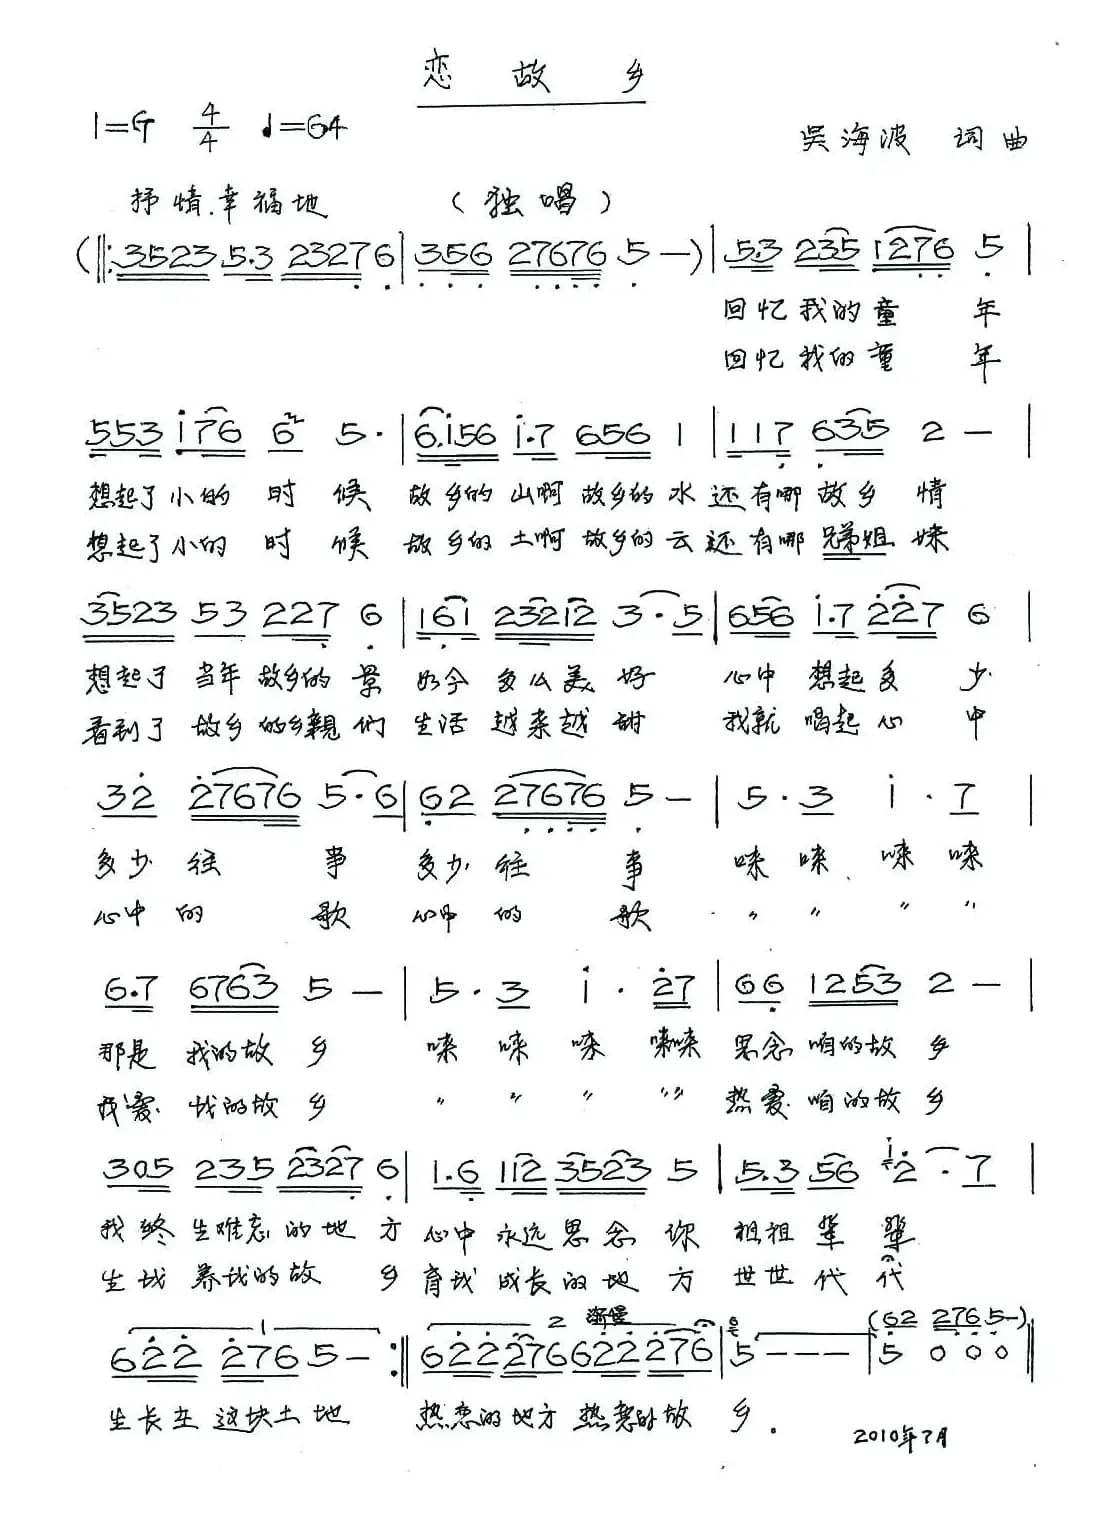 恋故乡
1=G 4/4 ♩=64
吴海波 词曲
抒情.幸福地 (独唱)
(‖: 3523 5·3 2327 6 | 356 27676 5 — ) | 5·3 235 1276 5 |
回忆我的童年
回忆我的童年
553 176 6 5· | 6·156 1·7 656 1 | 117 635 2 — |
想起了小的时候 故乡的山啊 故乡的水 还有哪故乡情
想起了小的时候 故乡的土啊 故乡的云 还有哪兄弟姐妹
3523 53 227 6 | 161 23212 3·5 | 656 1·7 227 6 |
想起了当年故乡的景 如今多么美好 心中想起多少
看到了故乡的乡親们 生活越来越甜 我就唱起心中
32 27676 5·6 | 62 27676 5 — | 5·3 1·7 |
多少往事 多少往事 唻唻唻唻
心中的歌 心中的歌 〃 〃 〃 〃
6·7 6763 5 — | 5·3 1·27 | 66 1253 2 — |
那是我的故乡 唻唻唻唻唻 思念咱的故乡
我爱.我的故乡 〃 〃 〃 〃〃 热爱.咱的故乡
305 235 2327 6 | 1·6 112 3523 5 | 5·3 56 2·7 |
我终生难忘的地方 心中永远思念你 祖祖辈辈
生我养我的故乡 育我成长的地方 世世代代
1 2 渐慢 (62 276 5—)
622 276 5 — :‖ 622 276 622 276 | 5 — — — | 5 0 0 0 ‖
生长在这块土地 热恋的地方 热恋的故乡。
2010年7月